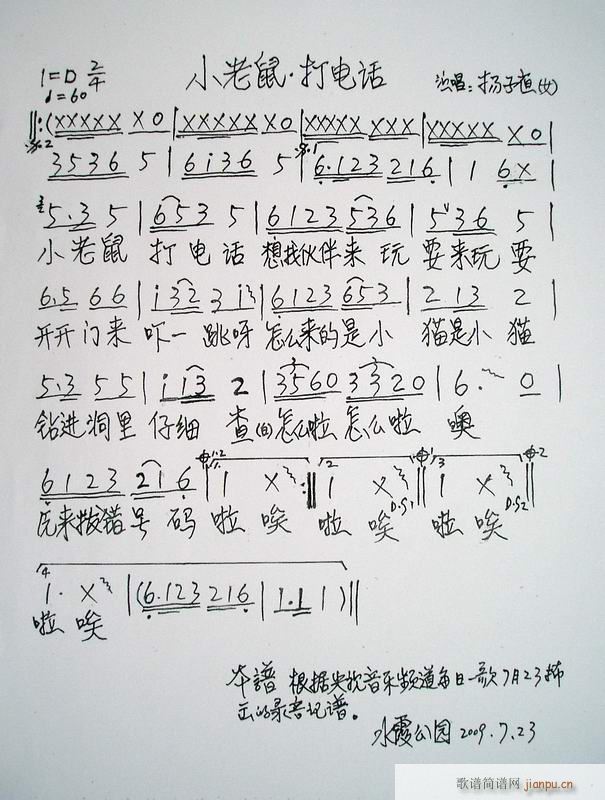 小老鼠·打电话
1=D 2/4
♩=60
演唱：扬子直(女)
‖:(XXXXX X0|XXXXX X0|XXXXX XXX|XXXXX X0|
3536 5|6i36 5|6.123 216|1 6X|
5.3 5|653 5|6123 536|5 36 5|
小老鼠 打电话 想找伙伴来玩 要来玩要
6.5 66|i32 3i|6123 653|2 13 2|
开开门来 吓一跳呀 怎么来的是小 猫是小猫
5.3 55|ii3 2|3560 3320|6. 0|
钻进洞里 仔细查(白)怎么啦 怎么啦 噢
6123 216|1 X:‖1 X‖1 X‖
原来拨错号码啦唉 啦唉 啦唉
1. X|(6.123 216|1.1 1)‖
啦唉
本谱根据央视音乐频道每日一歌7月23播
出的录音记谱。
水霞公园 2009.7.23
歌谱简谱网 jianpu.cn